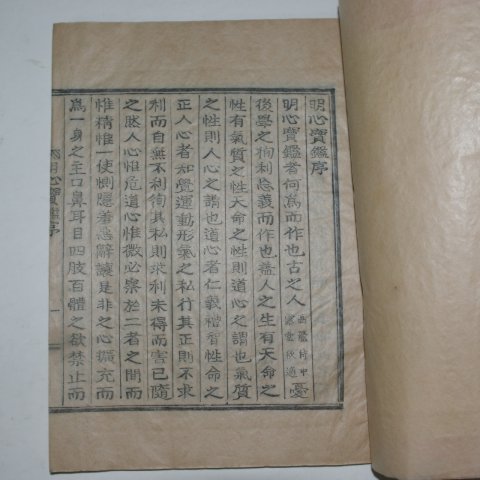 明心寶鑑序
明心寶鑑者何爲而作也古之人憂
後學之徇利忘義而作也蓋人之生有天命之
性有氣質之性天命之性則道心之謂也氣質
之性則人心之謂也道心者仁義禮智性命之
正人心者知覺運動形氣之私行其正則不求
利而自無不利徇其私則求利未得而害已隨
之然人心惟危道心惟微必察於二者之間而
惟精惟一使惻隱羞惡辭讓是非之心擴充而
爲一身之主口鼻耳目四肢百體之欲禁止而
明心寶鑑序 一